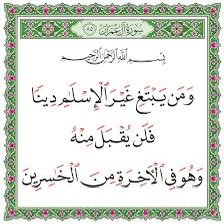 سورة آل عمران ٨٥
بسم الله الرحمن الرحيم
وَمَن يَبْتَغِ غَيْرَ الْإِسْلَٰمِ دِينًا
فَلَن يُقْبَلَ مِنْهُ
وَهُوَ فِي الْآخِرَةِ مِنَ الْخَٰسِرِينَ